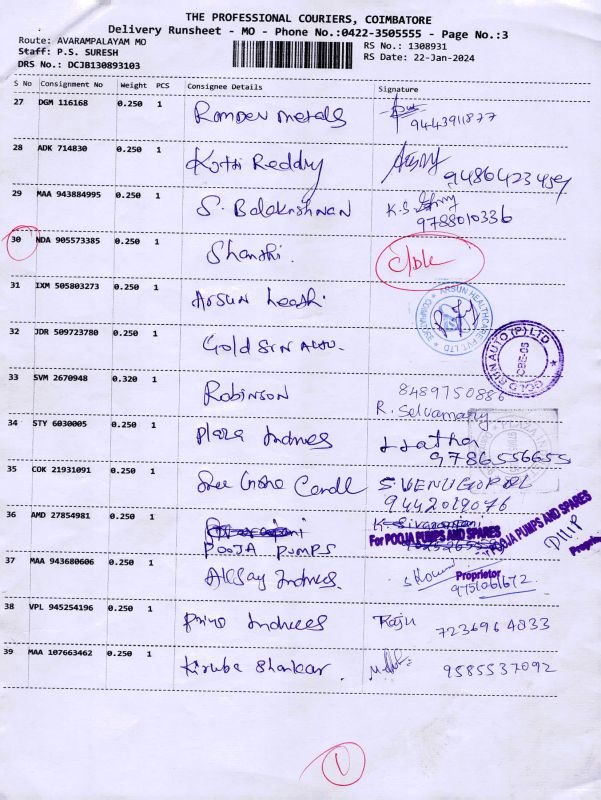 THE PROFESSIONAL COURIERS, COIMBATORE
Delivery Runsheet - MO - Phone No.:0422-3505555 - Page No.:3
Route: AVARAMPALAYAM MO
RS No.: 1308931
Staff: P.S. SURESH
RS Date: 22-Jan-2024
DRS No.: DCJB130893103
S No Consignment No Weight PCS Consignee Details Signature
27 DGM 116168 0.250 1 Ramdev metals
9443911877
28 ADK 714830 0.250 1 Kotti Reddy
9486423459
29 MAA 943884995 0.250 1 S. Balakrishnan K.S
9788010336
30 NDA 905573385 0.250 1 Shanthi. c/bk
31 IXM 505803273 0.250 1 Arsun
ARSUN HEALTHCARE PVT. LTD
32 JDR 509723780 0.250 1 Gold Sun Auto.
GOLD SUN AUTO (P) LTD
33 SVM 2670948 0.320 1 Robinson 8489750886
R. Selvamany
34 STY 6030005 0.250 1 Plaza Indries Latha
9786556655
35 COK 21931091 0.250 1 Sree SVENUGOPAL
9442019076
36 AMD 27854981 0.250 1 POOJA PUMPS
For POOJA PUMPS AND SPARES
POOJA PUMPS AND SPARES
DILIP
Proprietor
37 MAA 943680606 0.250 1 AkSay Indries.
9751061672
38 VPL 945254196 0.250 1 Indries Raju 7236964833
39 MAA 107663462 0.250 1 Kiruba Shankar. 9585537092